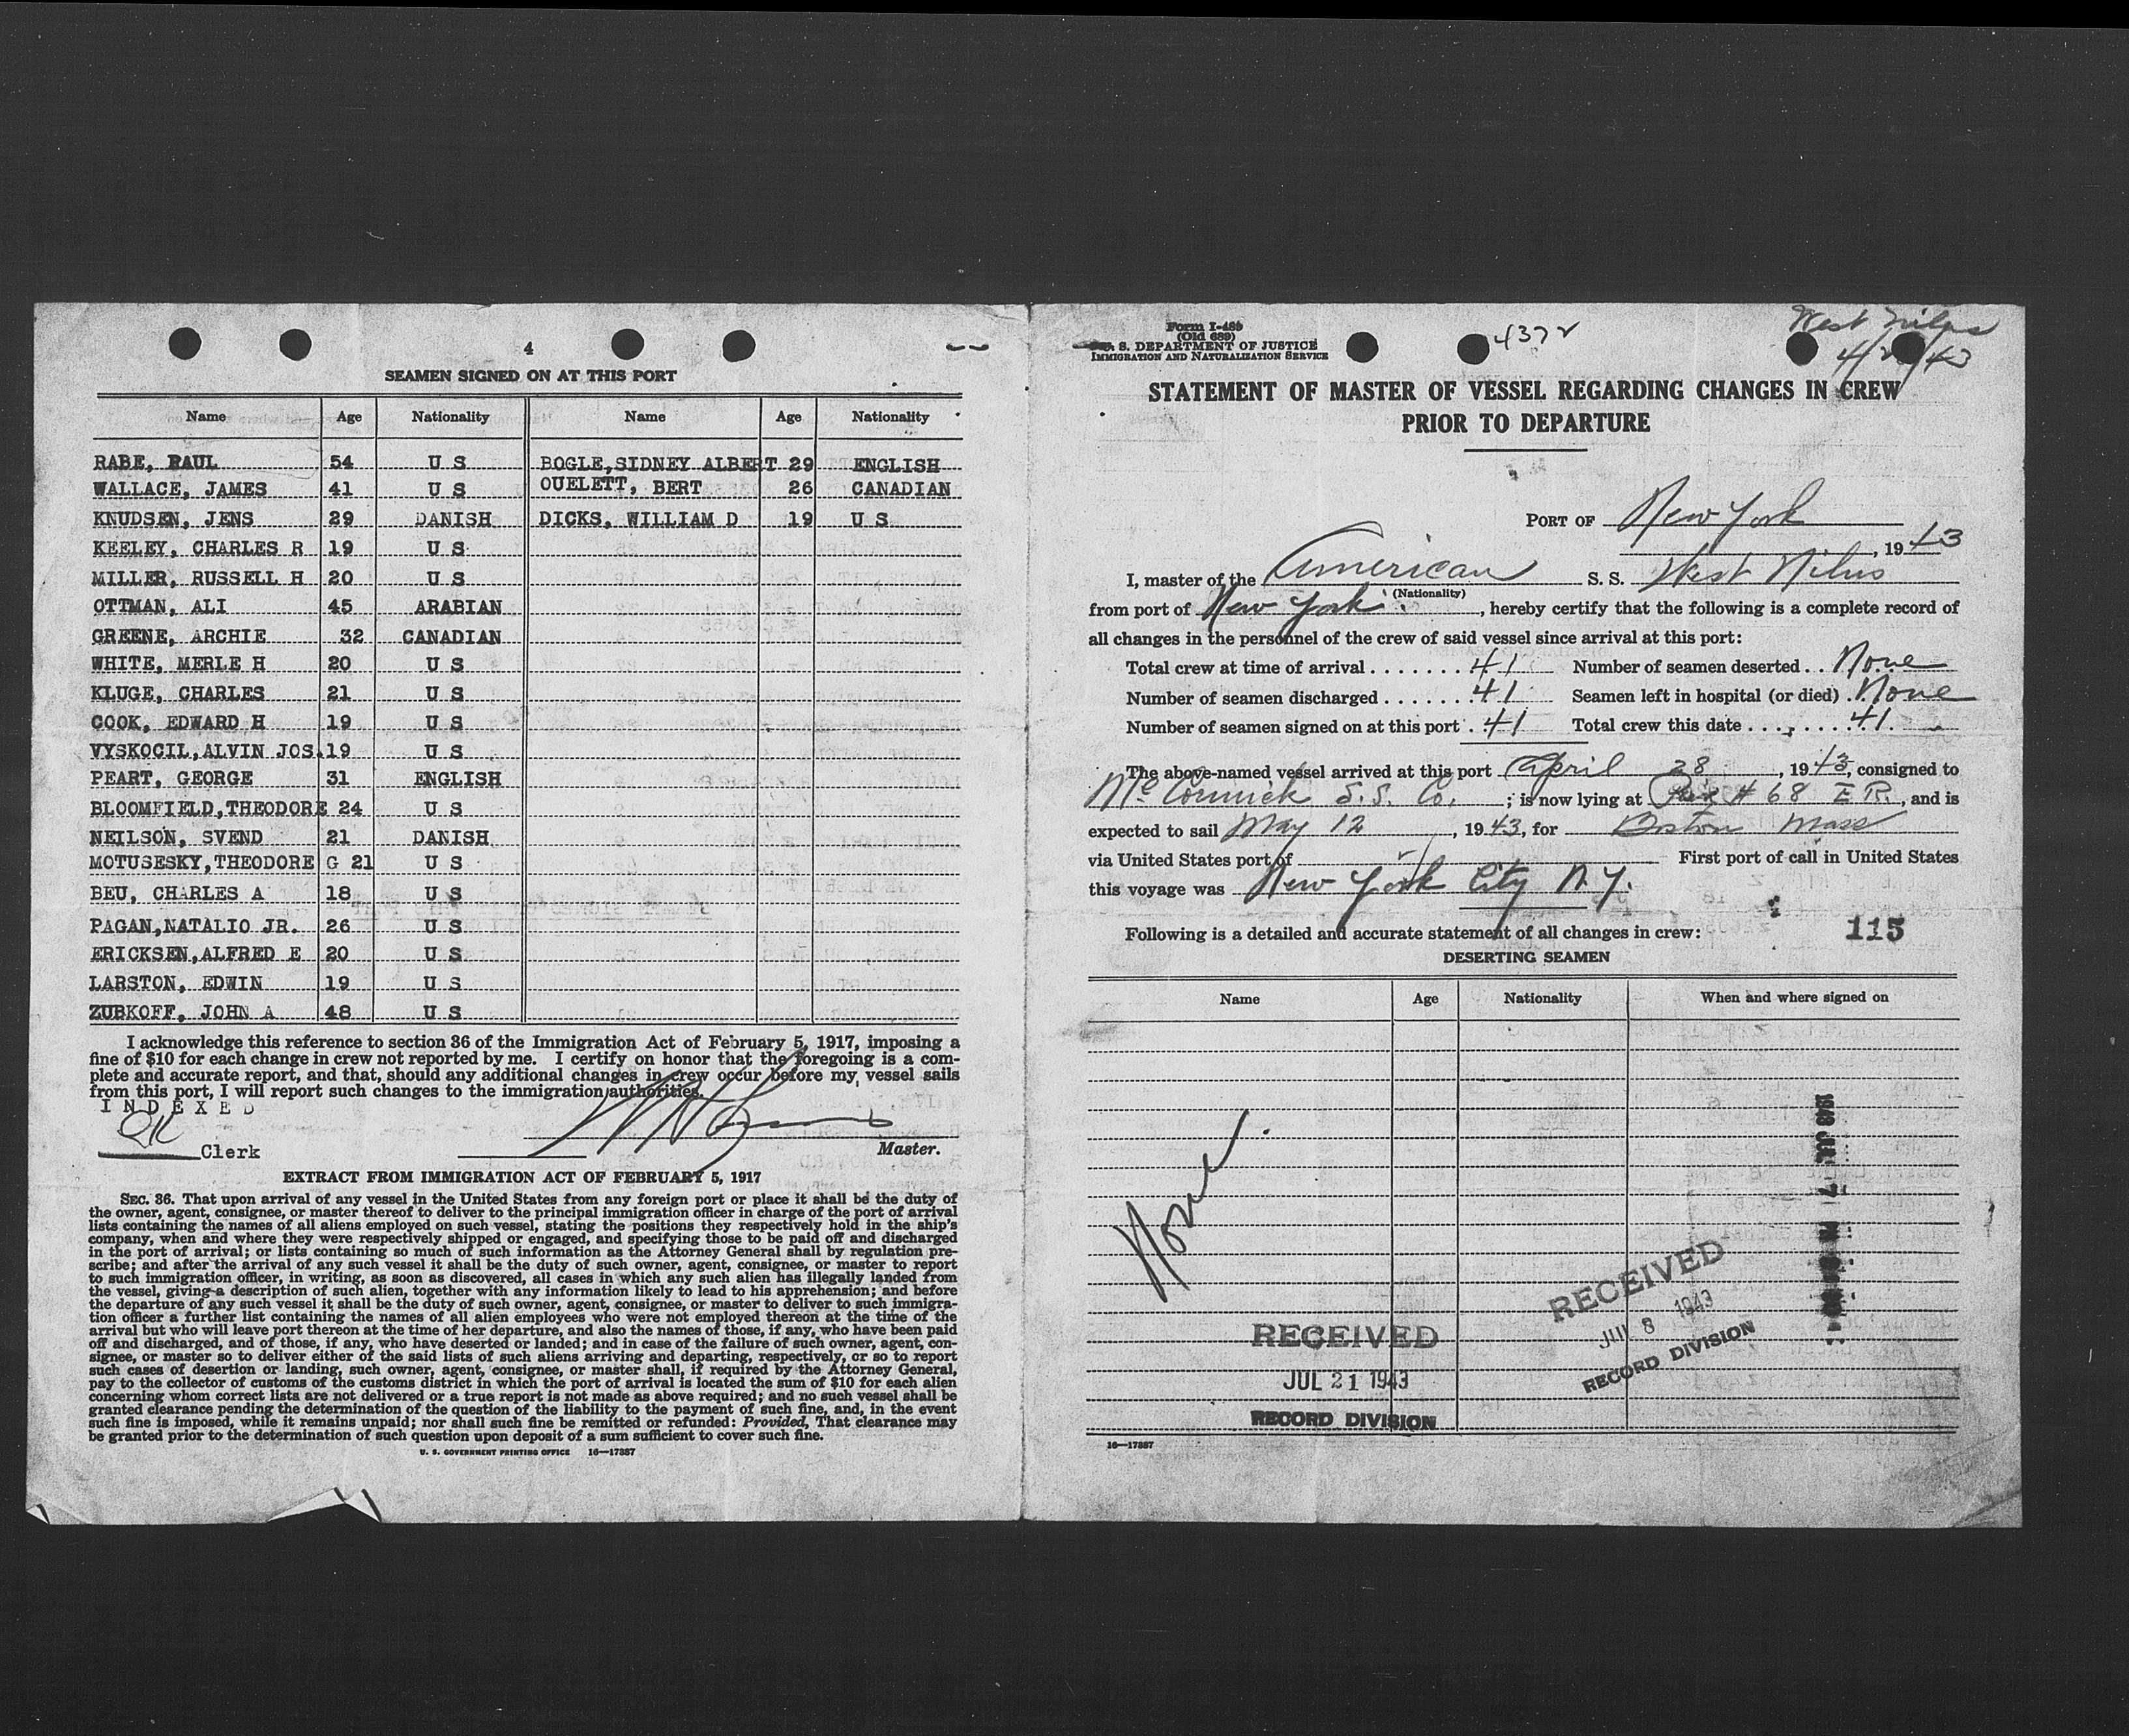 4
SEAMEN SIGNED ON AT THIS PORT
Name Age Nationality Name Age Nationality
RABE, PAUL 54 U S BOGLE,SIDNEY ALBERT 29 ENGLISH
WALLACE, JAMES 41 U S OUELETT, BERT 26 CANADIAN
KNUDSEN, JENS 29 DANISH DICKS, WILLIAM D 19 U S
KEELEY, CHARLES R 19 U S
MILLER, RUSSELL H 20 U S
OTTMAN, ALI 45 ARABIAN
GREENE, ARCHIE 32 CANADIAN
WHITE, MERLE H 20 U S
KLUGE, CHARLES 21 U S
COOK, EDWARD H 19 U S
VYSKOCIL,ALVIN JOS.19 U S
PEART, GEORGE 31 ENGLISH
BLOOMFIELD,THEODORE 24 U S
NEILSON, SVEND 21 DANISH
MOTUSESKY,THEODORE G 21 U S
BEU, CHARLES A 18 U S
PAGAN,NATALIO JR. 26 U S
ERICKSEN,ALFRED E 20 U S
LARSTON, EDWIN 19 U S
ZUBKOFF, JOHN A 48 U S
I acknowledge this reference to section 36 of the Immigration Act of February 5, 1917, imposing a
fine of $10 for each change in crew not reported by me. I certify on honor that the foregoing is a com-
plete and accurate report, and that, should any additional changes in crew occur before my vessel sails
from this port, I will report such changes to the immigration authorities.
INDEXED
Clerk
Master.
EXTRACT FROM IMMIGRATION ACT OF FEBRUARY 5, 1917
SEC. 36. That upon arrival of any vessel in the United States from any foreign port or place it shall be the duty of
the owner, agent, consignee, or master thereof to deliver to the principal immigration officer in charge of the port of arrival
lists containing the names of all aliens employed on such vessel, stating the positions they respectively hold in the ship's
company, when and where they were respectively shipped or engaged, and specifying those to be paid off and discharged
in the port of arrival; or lists containing so much of such information as the Attorney General shall by regulation pre-
scribe; and after the arrival of any such vessel it shall be the duty of such owner, agent, consignee, or master to report
to such immigration officer, in writing, as soon as discovered, all cases in which any such alien has illegally landed from
the vessel, giving a description of such alien, together with any information likely to lead to his apprehension; and before
the departure of any such vessel it shall be the duty of such owner, agent, consignee, or master to deliver to such immigra-
tion officer a further list containing the names of all alien employees who were not employed thereon at the time of the
arrival but who will leave port thereon at the time of her departure, and also the names of those, if any, who have been paid
off and discharged, and of those, if any, who have deserted or landed; and in case of the failure of such owner, agent, con-
signee, or master so to deliver either of the said lists of such aliens arriving and departing, respectively, or so to report
such cases of desertion or landing, such owner, agent, consignee, or master shall, if required by the Attorney General,
pay to the collector of customs of the customs district in which the port of arrival is located the sum of $10 for each alien
concerning whom correct lists are not delivered or a true report is not made as above required; and no such vessel shall be
granted clearance pending the determination of the question of the liability to the payment of such fine, and, in the event
such fine is imposed, while it remains unpaid; nor shall such fine be remitted or refunded: Provided, That clearance may
be granted prior to the determination of such question upon deposit of a sum sufficient to cover such fine.
U. S. GOVERNMENT PRINTING OFFICE 16—17887
Form I-489
(Old 689)
U. S. DEPARTMENT OF JUSTICE
IMMIGRATION AND NATURALIZATION SERVICE
4372
West Nilus
STATEMENT OF MASTER OF VESSEL REGARDING CHANGES IN CREW
PRIOR TO DEPARTURE
PORT OF New York
, 1943
I, master of the American S. S. West Nilus
(Nationality)
from port of New York, hereby certify that the following is a complete record of
all changes in the personnel of the crew of said vessel since arrival at this port:
Total crew at time of arrival . . . . . . . 41 Number of seamen deserted . . None
Number of seamen discharged . . . . . . . 41 Seamen left in hospital (or died) . None
Number of seamen signed on at this port . . 41 Total crew this date . . . . . . . . 41
The above-named vessel arrived at this port April 28, 1943, consigned to
McCormick S.S. Co. ; is now lying at Pier # 68 E R., and is
expected to sail May 12, 1943, for Boston Mass
via United States port of First port of call in United States
this voyage was New York City N.Y.
Following is a detailed and accurate statement of all changes in crew: 115
DESERTING SEAMEN
Name Age Nationality When and where signed on
None.
1943 JUL 7
RECEIVED
JUL 8 1943
RECORD DIVISION
RECEIVED
JUL 21 1943
RECORD DIVISION
16—17887